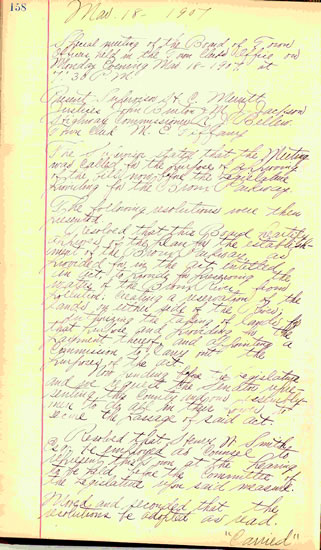 158
Mar. 18 - 1907
Special meeting of the Board of Town
Officers held in the Town Clerks Office on
Monday Evening Mar 18 - 1907 at
7:30 P.M.
Present Supervisor H. E. Merritt
Justices John Jackson
Highway Commissioner
Town Clerk M. E. Tiffany
The stated that the Meeting
was called for the purpose of approving
of the bill now before the Legislature
providing for the Bronx Parkway.
The following resolutions were then
presented.
Resolved that this Board heartily
of the plan for the establish-
ment of the Bronx Parkway as
provided for in the act entitled
An act to provide for preserving the
waters of the Bronx River from
pollution: creating a reservation of the
lands on either side of the River;
authorizing the taking of lands for
that purpose and providing for the
payment thereof, and appointing a
Commission to carry out the
purposes of the act.
the legislature
and we request the Senators repre-
senting this County and our assembly-
men to do all in their power to
secure the passage of said act.
Resolved that Henry W. Smith
be employed as Counsel to
represent this Town at the hearing
to be held before the Committee of
the Legislature upon said measure.
Moved and seconded that the
resolutions be adopted as read.
"Carried"